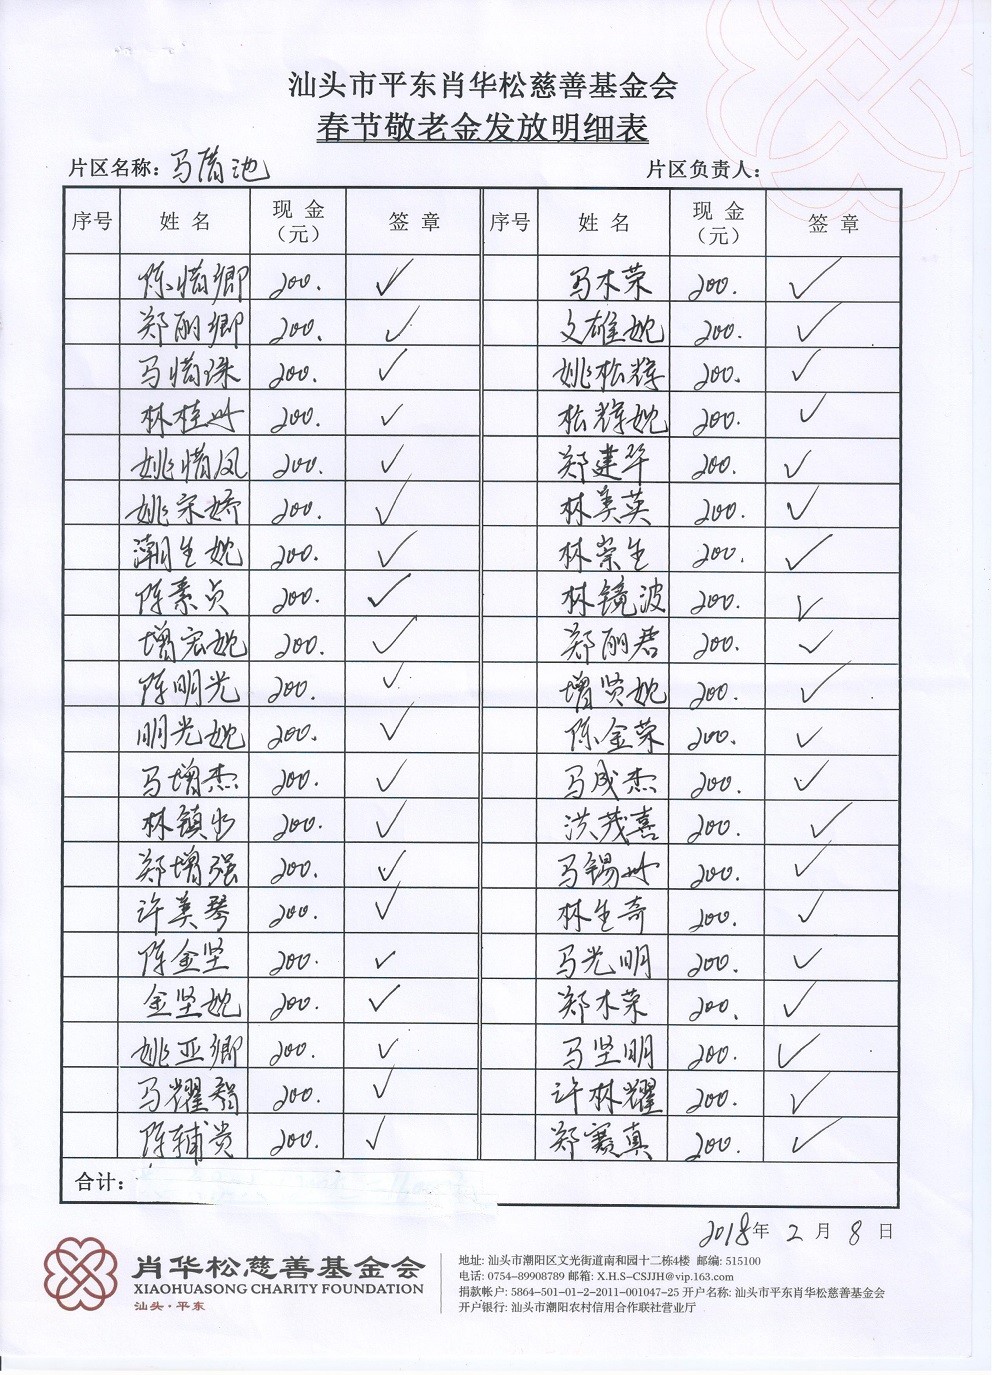 汕头市平东肖华松慈善基金会
春节敬老金发放明细表
片区名称: 马 池 片区负责人:
序号 姓 名 现 金(元) 签 章 序号 姓 名 现 金(元) 签 章
陈惜卿 200. ✓ 马木荣 200. ✓
郑丽卿 200. ✓ 文雄她 200. ✓
马惜珠 200. ✓ 姚松辉 200. ✓
林桂 200. ✓ 松辉她 200. ✓
姚惜凤 200. ✓ 郑建华 200. ✓
姚宋娇 200. ✓ 林美英 200. ✓
潮生她 200. ✓ 林崇生 200. ✓
陈素贞 200. ✓ 林镜波 200. ✓
增宏她 200. ✓ 郑丽君 200. ✓
陈明光 200. ✓ 增贤她 200. ✓
明光她 200. ✓ 陈金荣 200. ✓
马增杰 200. ✓ 马成杰 200. ✓
林镇 200. ✓ 洪茂喜 200. ✓
郑增强 200. ✓ 马锡 200. ✓
许美琴 200. ✓ 林生奇 200. ✓
陈金坚 200. ✓ 马光明 200. ✓
金坚她 200. ✓ 郑木荣 200. ✓
姚亚卿 200. ✓ 马坚明 200. ✓
马耀 200. ✓ 许林耀 200. ✓
陈辅贵 200. ✓ 郑赛真 200. ✓
合计:
2018年 2 月 8 日
肖华松慈善基金会
XIAOHUASONG CHARITY FOUNDATION
汕头·平东
地址: 汕头市潮阳区文光街道南和园十二栋4楼 邮编: 515100
电话: 0754-89908789 邮箱: X.H.S-CSJJH@vip.163.com
捐款帐户: 5864-501-01-2-2011-001047-25 开户名称: 汕头市平东肖华松慈善基金会
开户银行: 汕头市潮阳农村信用合作联社营业厅